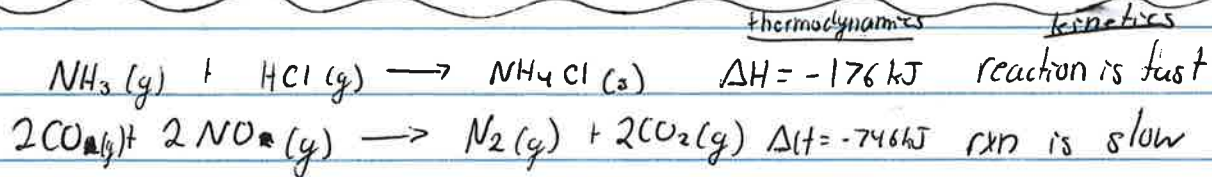 thermodynamics kinetics
NH₃ (g) + HCl (g) → NH₄Cl (s) ΔH = -176 kJ reaction is fast
2CO(g) + 2NO(g) → N₂ (g) + 2CO₂(g) ΔH = -746kJ rxn is slow